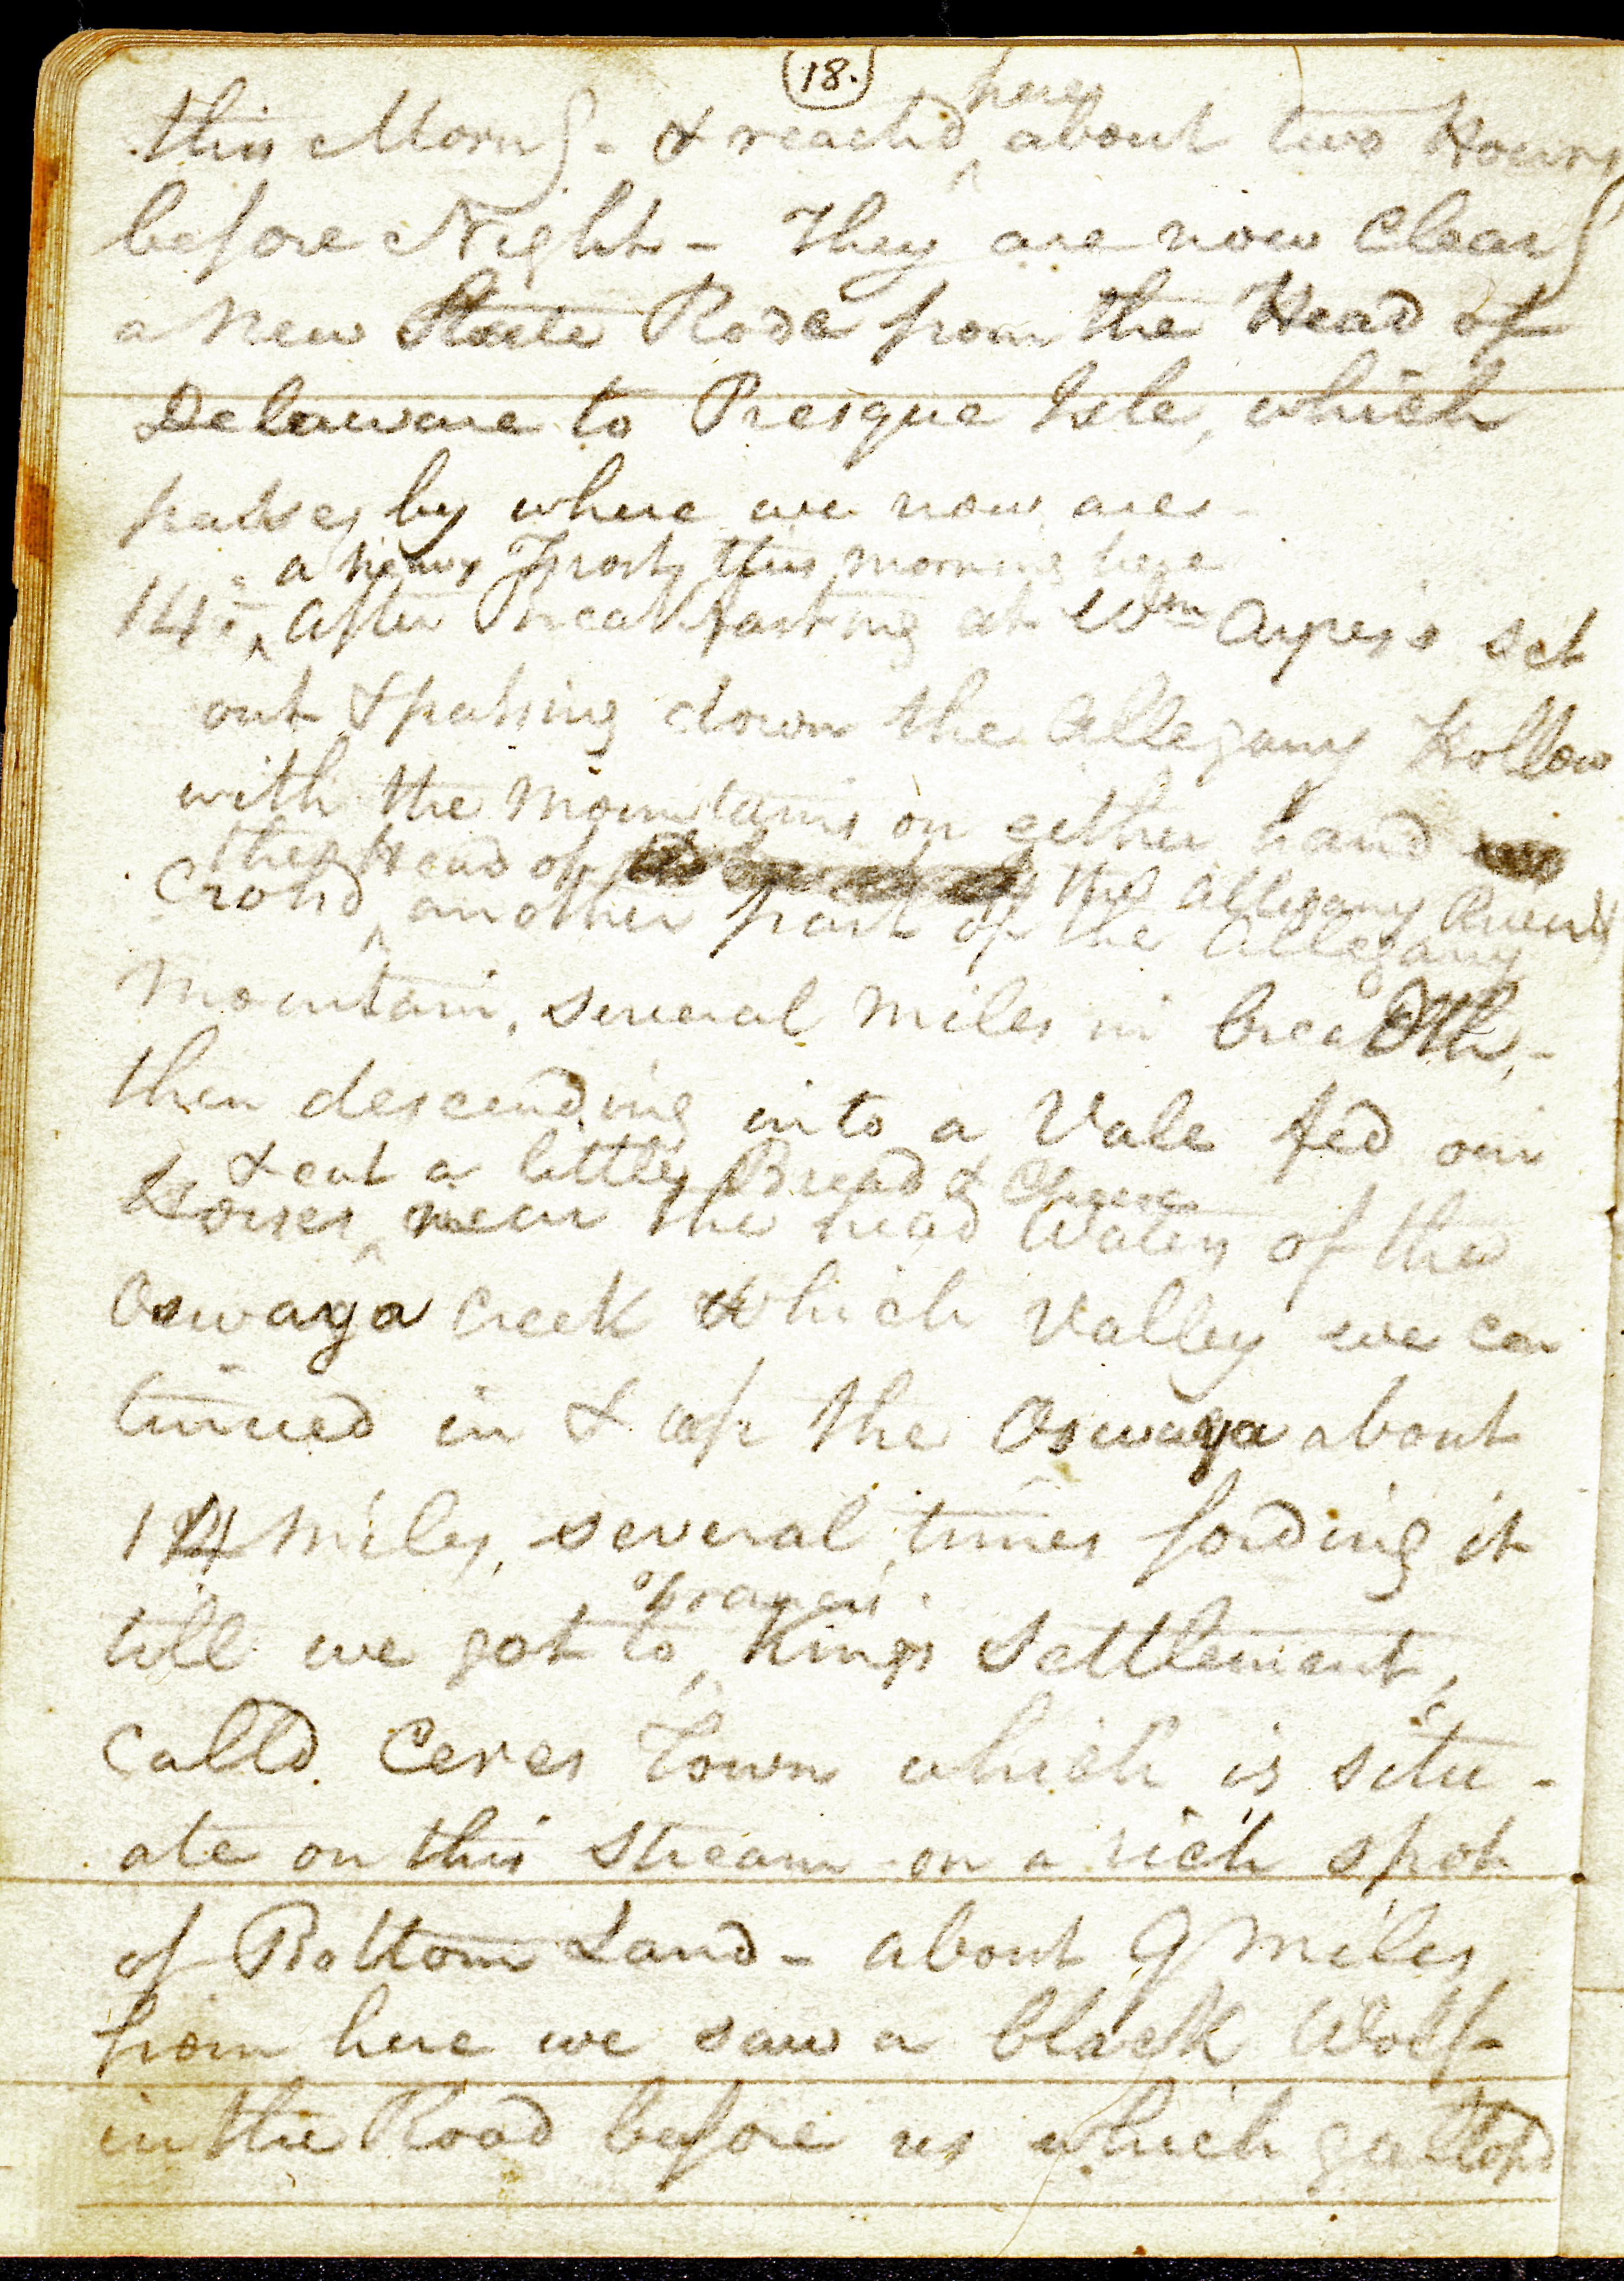 18.
here
this Morng - & reachd ^ about two Hours
before Night - They are now clearg
a new State Rode from the Head of
Delaware to Presque Isle, which
passes by where we now are -
a heavy Frost this morning here
14th ^ After Breakfasting at Wm Ayres's set
out & passing down the Allegany Hollow
with the Mountains on either hand
the Head of the Allegany River &
Crossd ^ another part of the Allegany
Mountain, several Miles in breadth, -
then descending into a Vale fed our
& eat a little Bread & Cheese
Horses ^ near the head Waters of the
Oswaya Creek which Valley we con
tinued in & up the Oswaya about
14 Miles, several times fording it
Francis
till we got to ^ Kings Settlement,
calld Ceres Town which is situ -
ate on this Stream on a rich spot
of Bottom Land - about 9 Miles
from here we saw a black Wolf
in the Road before us which gallopd